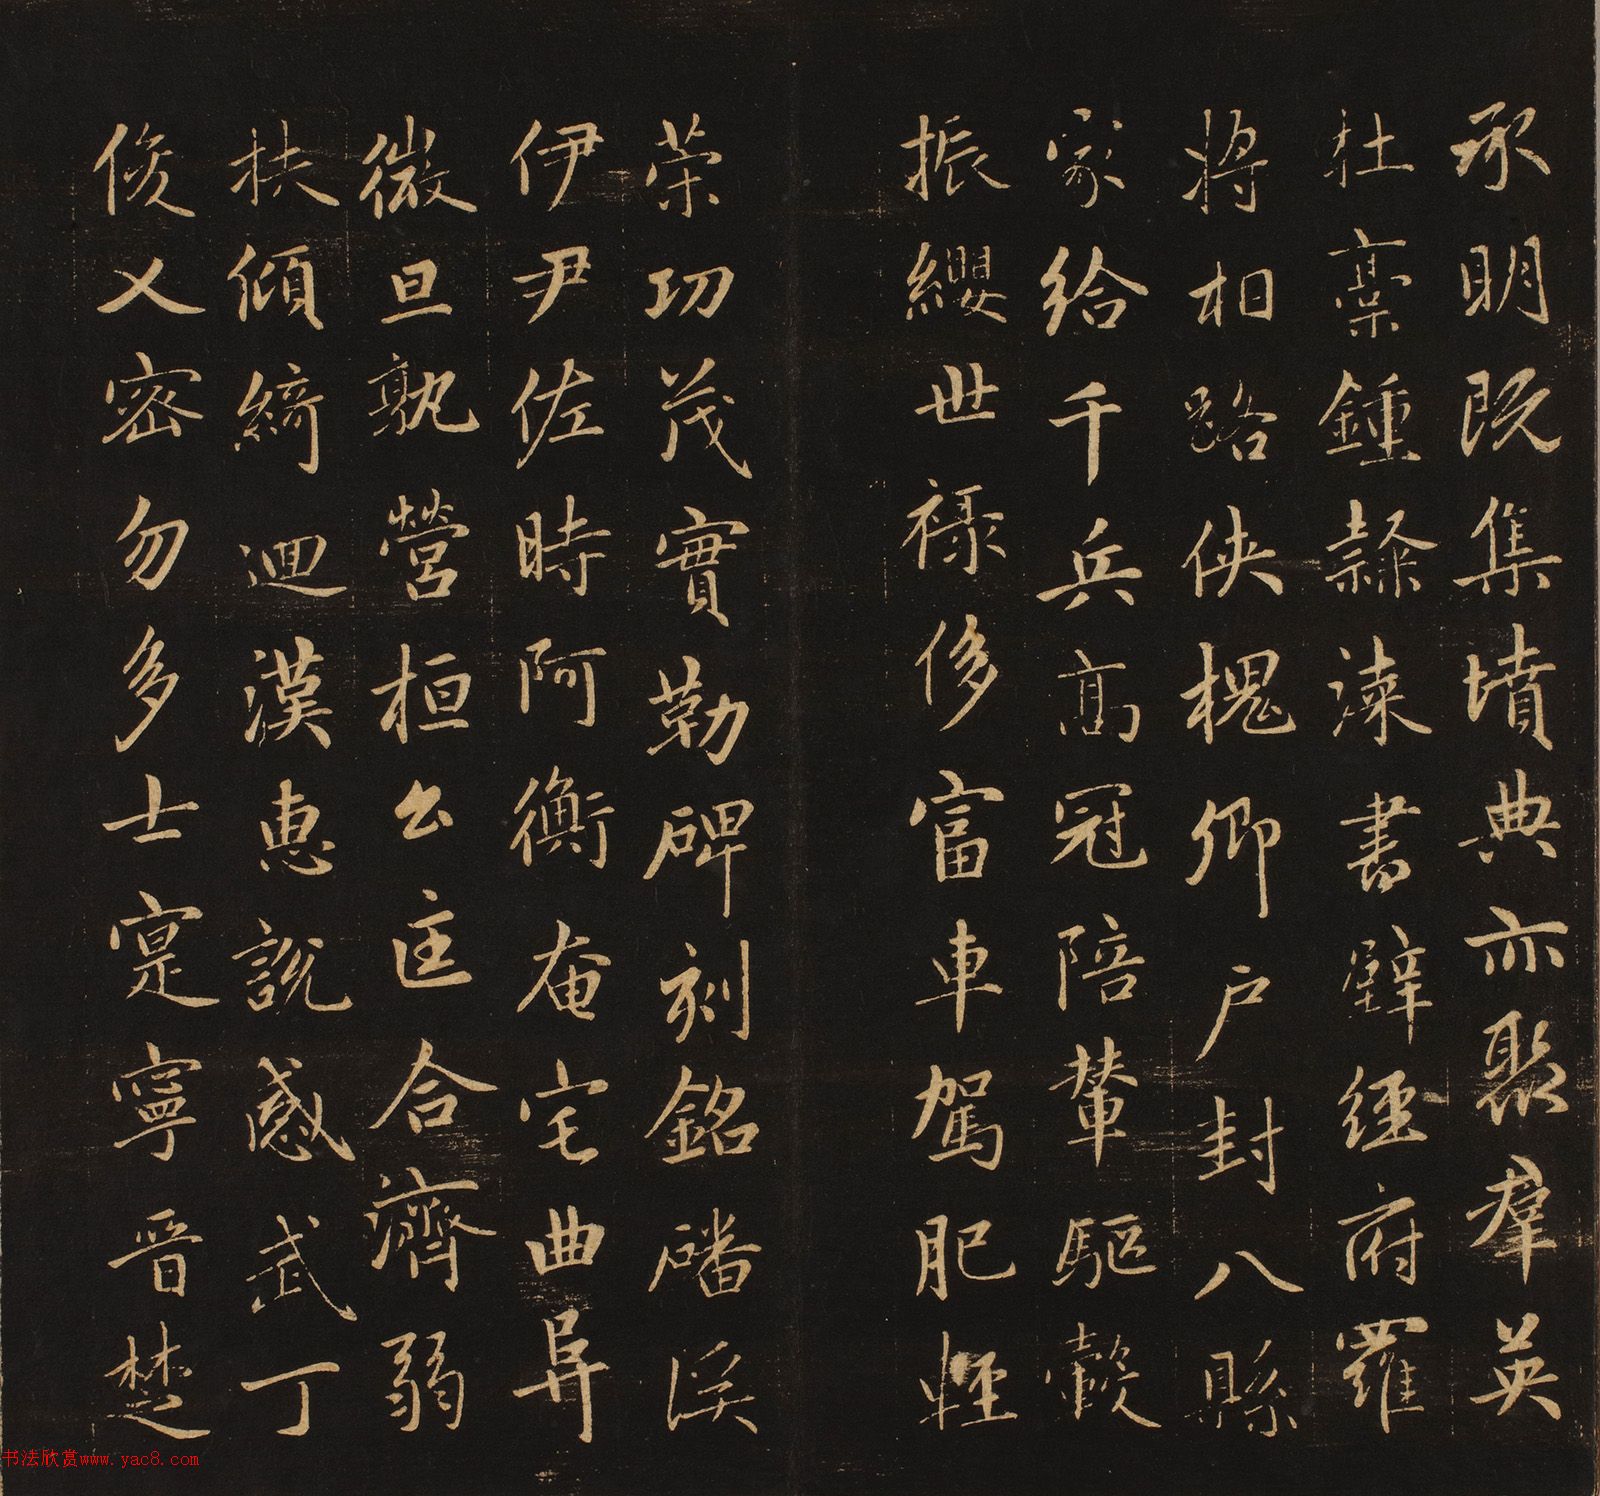 承明既集墳典亦聚羣英
杜稾鍾隸漆書壁經府羅
將相路俠槐卿户封八縣
家給千兵高冠陪輦驅轂
振纓世祿侈富車駕肥輕
策功茂實勒碑刻銘磻溪
伊尹佐時阿衡奄宅曲阜
微旦孰營桓公匡合濟弱
扶傾綺迴漢惠說感武丁
俊乂密勿多士寔寧晉楚
书法欣赏www.yac8.com